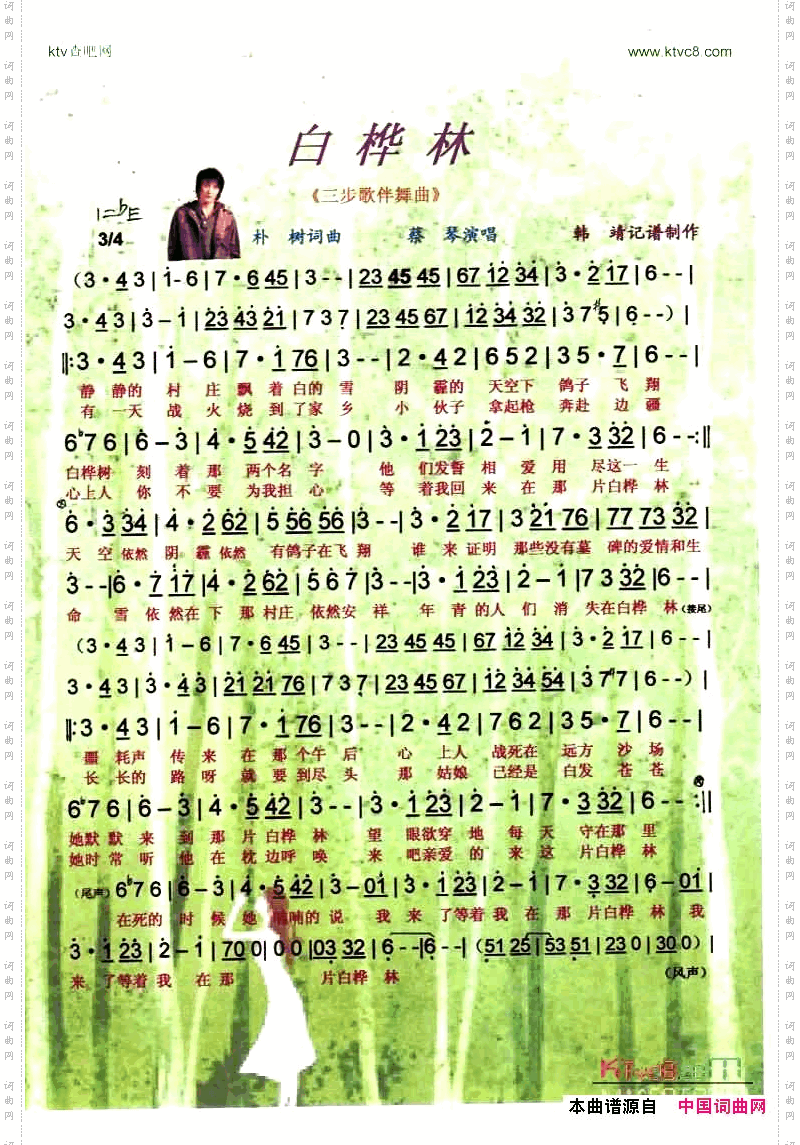 ktv查吧网
www.ktvc8.com
白桦林
《三步歌伴舞曲》
1=bE
3/4
朴 树词曲 蔡 琴演唱 韩 靖记谱制作
(3·43|1-6|7·645|3--|2345 45|671234|3·217|6--|
3·43|3-1|234321|737|234567|123432|37#5|6--)|
‖:3·43|1-6|7·176|3--|2·42|652|35·7|6--|
静 静的 村 庄 飘 着白的 雪 阴 霾的 天空下 鸽子 飞 翔
有 一天 战 火 烧 到了家 乡 小 伙子 拿起枪 奔赴 边 疆
6b76|6-3|4·542|3-0|3·123|2-1|7·332|6--:‖
白桦树 刻 着 那 两个名 字 他 们发誓 相 爱 用 尽这一 生
心上人 你 不 要 为我担 心 等 着我回 来 在 那 片白桦 林
6·334|4·262|55656|3--|3·217|32176|777332|
天 空 依然 阴 霾 依然 有鸽子在飞 翔 谁 来 证明 那些没有墓 碑的爱情和生
3--|6·717|4·262|5567|3--|3·123|2-1|73332|6--|
命 雪 依 然在 下 那 村庄 依然安 祥 年 青的人 们 消 失在白桦 林(接尾)
(3·43|1-6|7·645|3--|234545|671234|3·217|6--|
3·43|3·43|212176|737|234567|123454|377|6--)|
‖:3·43|1-6|7·176|3--|2·42|762|35·7|6--|
噩 耗声 传 来 在 那个午 后 心 上人 战死在 远方 沙 场
长 长的 路 呀 就 要到尽 头 那 姑娘 已经是 白发 苍 苍
6b76|6-3|4·542|3--|3·123|2-1|7·332|6--:‖
她默 默 来 到 那 片白桦 林 望 眼欲穿 地 每 天 守在那 里
她时 常 听 他 在 枕边呼 唤 来 吧亲爱 的 来 这 片白桦 林
(尾声)6b76|6-3|4·542|3-01|3·123|2-1|7·332|6-01|
在死的 时 候 她 喃喃的 说 我 来 了等着 我 在 那 片白桦 林 我
3·123|2-1|700|00|0332|6--|6--|(5125|5351|230|300)|
来 了等着 我 在 那 片白桦 林
(风声)
本曲谱源自 中国词曲网